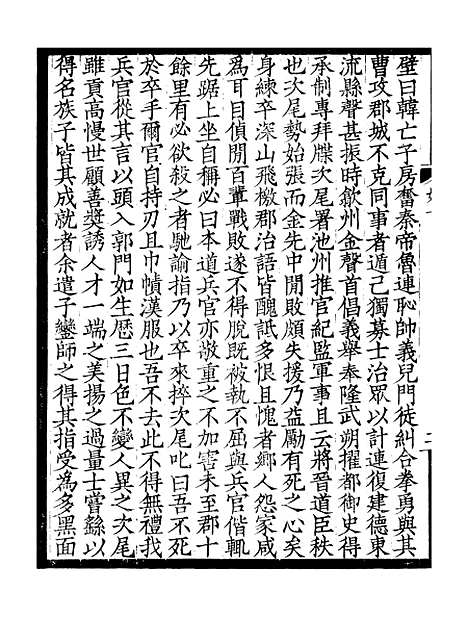 壁曰韓亡子房奮秦帝魯連恥帥義兒門徒糾合拳勇與其
曹攻郡城不克同事者遁己獨募士治眾以計連復建德東
流縣聲甚振時歙州金聲首倡義舉奉隆武朔擢都御史得
承制專拜牒次尾署池州推官紀監軍事且云將晉道臣秩
也次尾勢始張而金先中閒敗頗失援乃益勵有死之心矣
身練卒深山飛檄郡治語皆醜詆多恨且愧者鄉人怨家咸
為耳目偵閒百輩戰敗遂不得脫既被執不屈與兵官偕輒
先踞上坐自稱必曰本道兵官亦敬重之不加害未至郡十
餘里有必欲殺之者馳諭指乃以卒來捽次尾叱曰吾不死
於卒手爾官自持刃且巾幘漢服也吾不去此不得無禮我
兵官從其言以頭入郭門如生歷三日色不變人異之次尾
雖貢高慢世顧善獎誘人才一端之美揚之過量士嘗繇以
得名族子皆其成就者余遣子鑾師之得其指受為多黑面
二